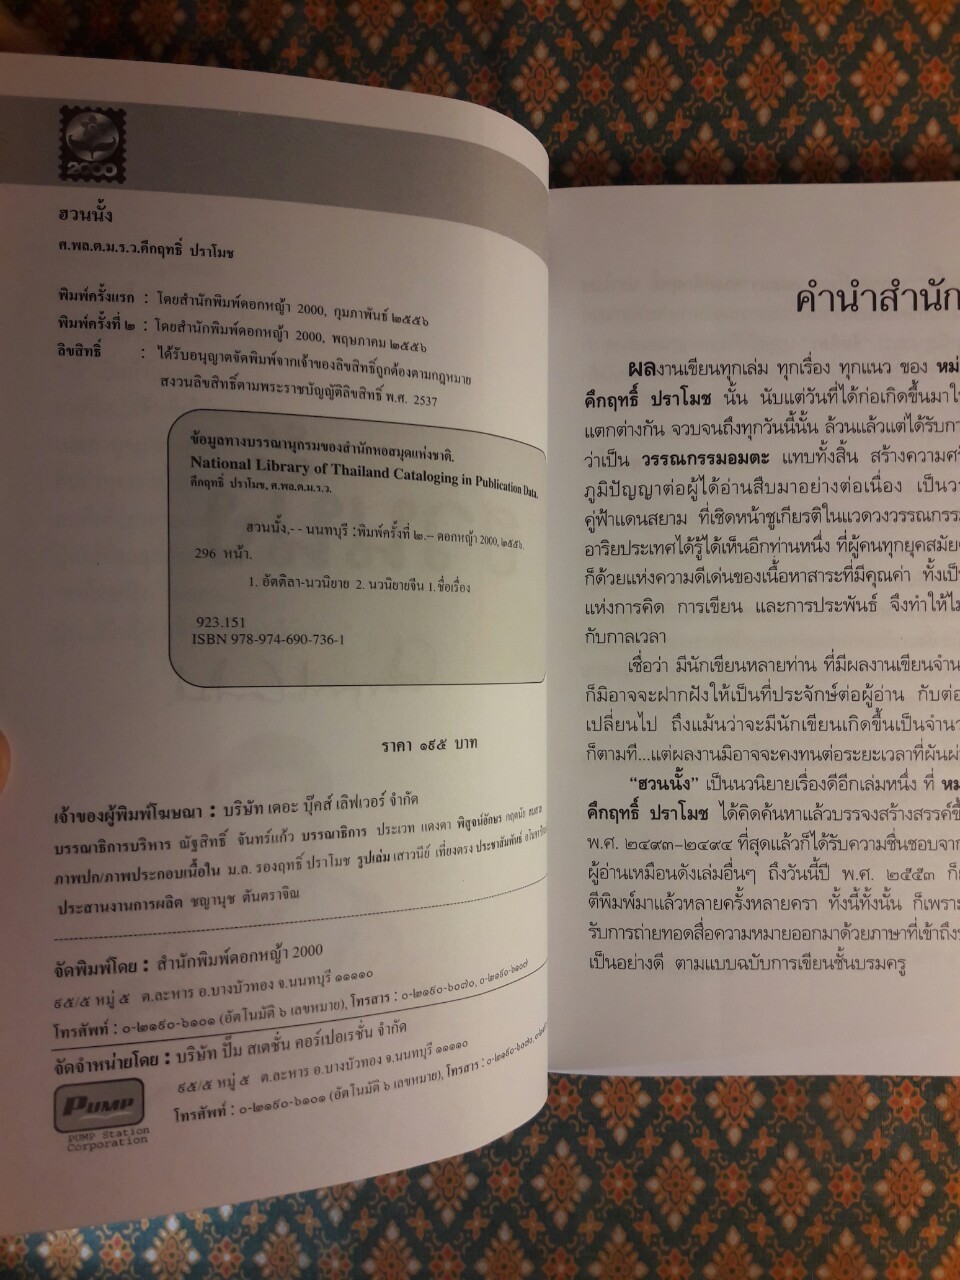 2000
ฮวนนั้ง
ศ.พล.ต.ม.ร.ว.คึกฤทธิ์ ปราโมช
พิมพ์ครั้งแรก : โดยสำนักพิมพ์ดอกหญ้า 2000, กุมภาพันธ์ ๒๕๕๖
พิมพ์ครั้งที่ ๒ : โดยสำนักพิมพ์ดอกหญ้า 2000, พฤษภาคม ๒๕๕๖
ลิขสิทธิ์ : ได้รับอนุญาตจัดพิมพ์จากเจ้าของลิขสิทธิ์ถูกต้องตามกฎหมาย
สงวนลิขสิทธิ์ตามพระราชบัญญัติลิขสิทธิ์ พ.ศ. 2537
ข้อมูลทางบรรณานุกรมของสำนักหอสมุดแห่งชาติ.
National Library of Thailand Cataloging in Publication Data.
คึกฤทธิ์ ปราโมช, ศ.พล.ต.ม.ร.ว.
ฮวนนั้ง,- - นนทบุรี :พิมพ์ครั้งที่ ๒.– ดอกหญ้า 2000, ๒๕๕๖.
296 หน้า.
1. อัตติลา-นวนิยาย 2. นวนิยายจีน 1. ชื่อเรื่อง
923.151
ISBN 978-974-690-736-1
ราคา ๑๙๕ บาท
เจ้าของผู้พิมพ์โฆษณา : บริษัท เดอะ บุ๊คส์ เลิฟเวอร์ จำกัด
บรรณาธิการบริหาร ณัฐสิทธิ์ จันทร์แก้ว บรรณาธิการ ประเวท แดงดา พิสูจน์อักษร
ภาพปก/ภาพประกอบเนื้อใน ม.ล. รองฤทธิ์ ปราโมช รูปเล่ม เสาวนีย์ เที่ยงตรง ประชาสัมพันธ์
ประสานงานการผลิต ชญานุช ตันตราจิณ
จัดพิมพ์โดย : สำนักพิมพ์ดอกหญ้า 2000
๙๕/๕ หมู่ ๕ ต.ละหาร อ.บางบัวทอง จ.นนทบุรี ๑๑๑๑๐
โทรศัพท์ : ๐-๒๑๙๐-๖๑๐๑ (อัตโนมัติ ๖ เลขหมาย), โทรสาร : ๐-๒๑๙๐-๖๐๗๐, ๐-๒๑๙๐-๖๑๐๗
จัดจำหน่ายโดย : บริษัท ปั๊ม สเตชั่น คอร์เปอเรชั่น จำกัด
๙๕/๕ หมู่ ๕ ต.ละหาร อ.บางบัวทอง จ.นนทบุรี ๑๑๑๑๐
โทรศัพท์ : ๐-๒๑๙๐-๖๑๐๑ (อัตโนมัติ ๖ เลขหมาย), โทรสาร : ๐-๒๑๙๐-๖๐๗๐,
PUMP
PUMP Station
Corporation
คำนำสำนัก
ผลงานเขียนทุกเล่ม ทุกเรื่อง ทุกแนว ของ หม่
คึกฤทธิ์ ปราโมช นั้น นับแต่วันที่ได้ก่อเกิดขึ้นมาใ
แตกต่างกัน จวบจนถึงทุกวันนี้นั้น ล้วนแล้วแต่ได้รับกา
ว่าเป็น วรรณกรรมอมตะ แทบทั้งสิ้น สร้างความศรั
ภูมิปัญญาต่อผู้ได้อ่านสืบมาอย่างต่อเนื่อง เป็นวร
คู่ฟ้าแดนสยาม ที่เชิดหน้าชูเกียรติในแวดวงวรรณกรรม
อาริยประเทศได้รู้ได้เห็นอีกท่านหนึ่ง ที่ผู้คนทุกยุคสมัย
ก็ด้วยแห่งความดีเด่นของเนื้อหาสาระที่มีคุณค่า ทั้งเป็น
แห่งการคิด การเขียน และการประพันธ์ จึงทำให้ไม
กับกาลเวลา
เชื่อว่า มีนักเขียนหลายท่าน ที่มีผลงานเขียนจำน
ก็มิอาจจะฝากฝังให้เป็นที่ประจักษ์ต่อผู้อ่าน กับต่อ
เปลี่ยนไป ถึงแม้นว่าจะมีนักเขียนเกิดขึ้นเป็นจำนว
ก็ตามที...แต่ผลงานมิอาจจะคงทนต่อระยะเวลาที่ผันผ่
“ฮวนนั้ง” เป็นนวนิยายเรื่องดีอีกเล่มหนึ่ง ที่ หม
คึกฤทธิ์ ปราโมช ได้คิดค้นหาแล้วบรรจงสร้างสรรค์ขึ้
พ.ศ. ๒๔๙๓–๒๔๙๔ ที่สุดแล้วก็ได้รับความชื่นชอบจาก
ผู้อ่านเหมือนดังเล่มอื่นๆ ถึงวันนี้ปี พ.ศ. ๒๕๕๓ ก็ย
ตีพิมพ์มาแล้วหลายครั้งหลายครา ทั้งนี้ทั้งนั้น ก็เพราะ
รับการถ่ายทอดสื่อความหมายออกมาด้วยภาษาที่เข้าถึง
เป็นอย่างดี ตามแบบฉบับการเขียนชั้นบรมครู